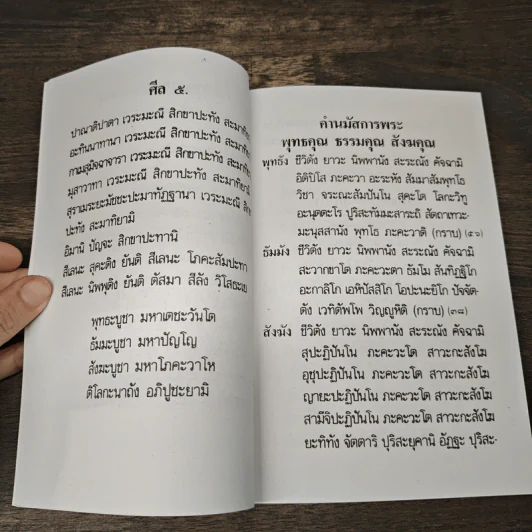 ศีล ๕.
ปาณาติปาตา เวระมะณี สิกขาปะทัง สะมาทิยา
อะทินนาทานา เวระมะณี สิกขาปะทัง สะมาทิ
กาเมสุมิจฉาจารา เวระมะณี สิกขาปะทัง สะมาทิ
มุสาวาทา เวระมะณี สิกขาปะทัง สะมาทิยามิ
สุราเมระยะมัชชะปะมาทัฏฐานา เวระมะณี สิก
ปะทัง สะมาทิยามิ
อิมานิ ปัญจะ สิกขาปะทานิ
สีเลนะ สุคะติง ยันติ สีเลนะ โภคะสัมปะทา
สีเลนะ นิพพุติง ยันติ ตัสมา สีลัง วิโสธะเย
พุทธะบูชา มหาเตชะวันโต
ธัมมะบูชา มหาปัญโญ
สังฆะบูชา มหาโภคะวาโห
ติโลกะนาถัง อภิปูชะยามิ
คำนมัสการพระ
พุทธคุณ ธรรมคุณ สังฆคุณ
พุทธัง ชีวิตัง ยาวะ นิพพานัง สะระณัง คัจฉามิ
อิติปิโส ภะคะวา อะระหัง สัมมาสัมพุทโธ
วิชา จะระณะสัมปันโน สุคะโต โลกะวิทู
อะนุตตะโร ปุริสะทัมมะสาระถิ สัตถาเทวะ-
มะนุสสานัง พุทโธ ภะคะวาติ (กราบ) (๕๖)
ธัมมัง ชีวิตัง ยาวะ นิพพานัง สะระณัง คัจฉามิ
สะวากขาโต ภะคะวะตา ธัมโม สันทิฏฐิโก
อะกาลิโก เอหิปัสสิโก โอปะนะยิโก ปัจจัต-
ตัง เวทิตัพโพ วิญญูหิติ (กราบ) (๓๘)
สังฆัง ชีวิตัง ยาวะ นิพพานัง สะระณัง คัจฉามิ
สุปะฏิปันโน ภะคะวะโต สาวะกะสังโฆ
อุชุปะฏิปันโน ภะคะวะโต สาวะกะสังโฆ
ญายะปะฏิปันโน ภะคะวะโต สาวะกะสังโฆ
สามีจิปะฏิปันโน ภะคะวะโต สาวะกะสังโฆ
ยะทิทัง จัตตาริ ปุริสะยุคานิ อัฏฐะ ปุริสะ-